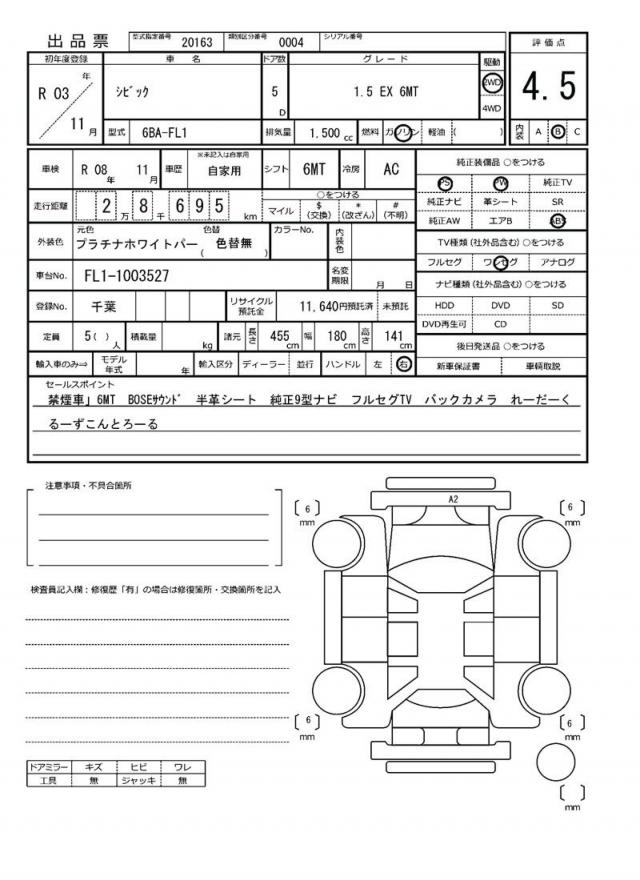 出品票
型式指定番号 20163 類別区分番号 0004 シリアル番号
評価点
4.5
内装 A B C
初年度登録 車名 ドア数 グレード 駆動
R 03 年 11 月 シビック 5 D 1.5 EX 6MT 2WD 4WD
型式 6BA-FL1 排気量 1.500 cc 燃料 ガソリン 軽油 ( )
車検 R 08 年 11 月 車歴 ※未記入は自家用 自家用 シフト 6MT 冷房 AC
走行距離 2 万 8 千 6 9 5 km
○をつける
マイル $ (交換) * (改ざん) # (不明)
外装色 元色 プラチナホワイトパー 色替 ( 色替無 ) カラーNo. 内装色
車台No. FL1-1003527 名変期限 月 日
登録No. 千葉 リサイクル預託金 11,640円預託済 未預託
定員 5( ) 人 積載量 kg 諸元 長さ 455 cm 幅 180 cm 高さ 141 cm
輸入車のみ⇒ モデル年式 年 輸入区分 ディーラー 並行 ハンドル 左 右
純正装備品 ○をつける
PS PW 純正TV
純正ナビ 革シート SR
純正AW エアB ABS
TV種類 (社外品含む) ○をつける
フルセグ ワンセグ アナログ
ナビ種類 (社外品含む) ○をつける
HDD DVD SD
DVD再生可 CD
後日発送品 ○をつける
新車保証書 車輌取説
セールスポイント
禁煙車」6MT BOSEサウンド 半革シート 純正9型ナビ フルセグTV バックカメラ れーだーく
るーずこんとろーる
注意事項・不具合箇所
検査員記入欄：修復歴「有」の場合は修復箇所・交換箇所を記入
ドアミラー キズ ヒビ ワレ
工具 無 ジャッキ 無
A2
6 mm
6 mm
6 mm
6 mm
mm